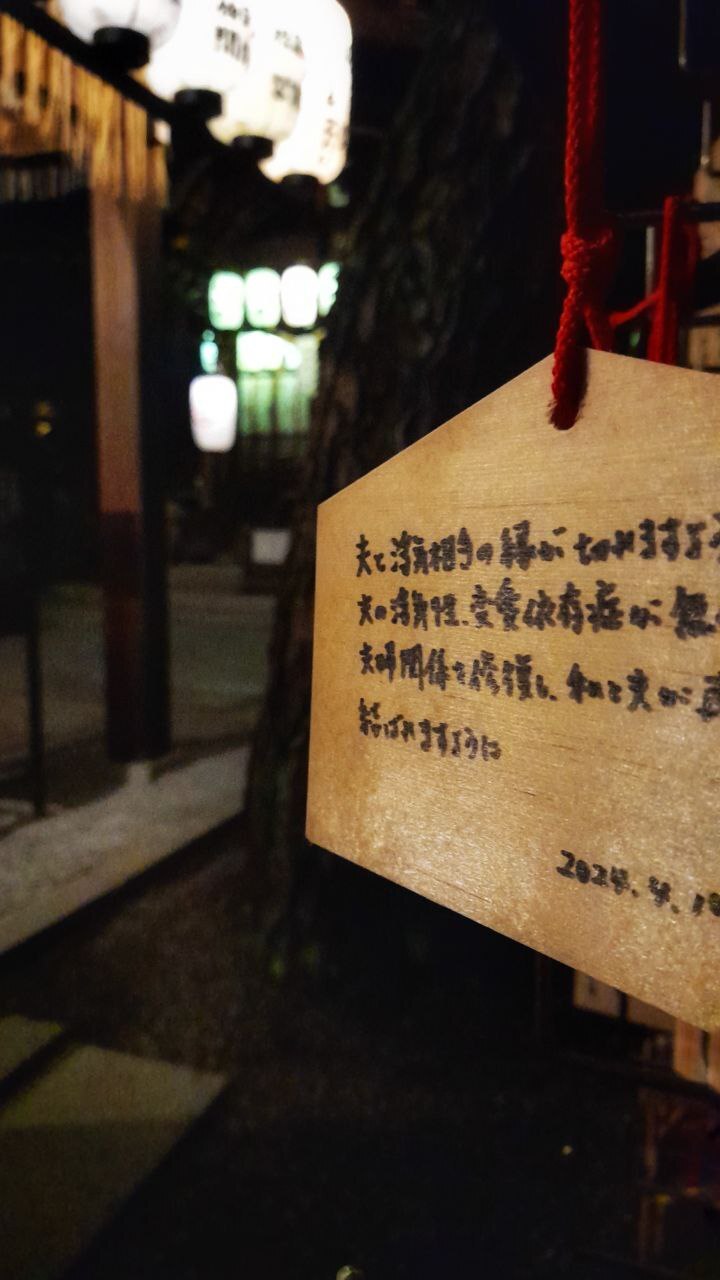 夫と浮気相手の縁が切れますよう
夫の浮気性、恋愛依存症が無
夫婦関係を修復し、私と夫が
結ばれますように
2024.4.10